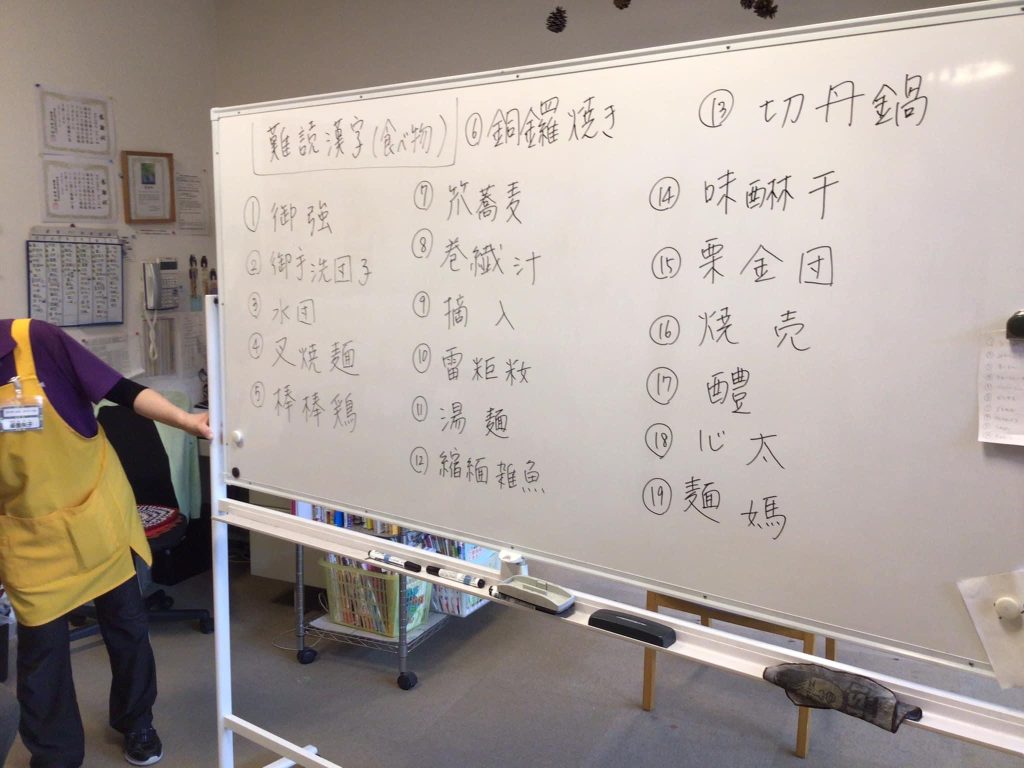 難読漢字(食べ物)
① 御強
② 御手洗団子
③ 水団
④ 叉焼麺
⑤ 棒棒鶏
⑥ 銅鑼焼き
⑦ 笊蕎麦
⑧ 巻繊汁
⑨ 摘入
⑩ 雷粔籹
⑪ 湯麺
⑫ 縮緬雑魚
⑬ 切丹鍋
⑭ 味醂干
⑮ 栗金団
⑯ 焼売
⑰ 醴
⑱ 心太
⑲ 麺媽